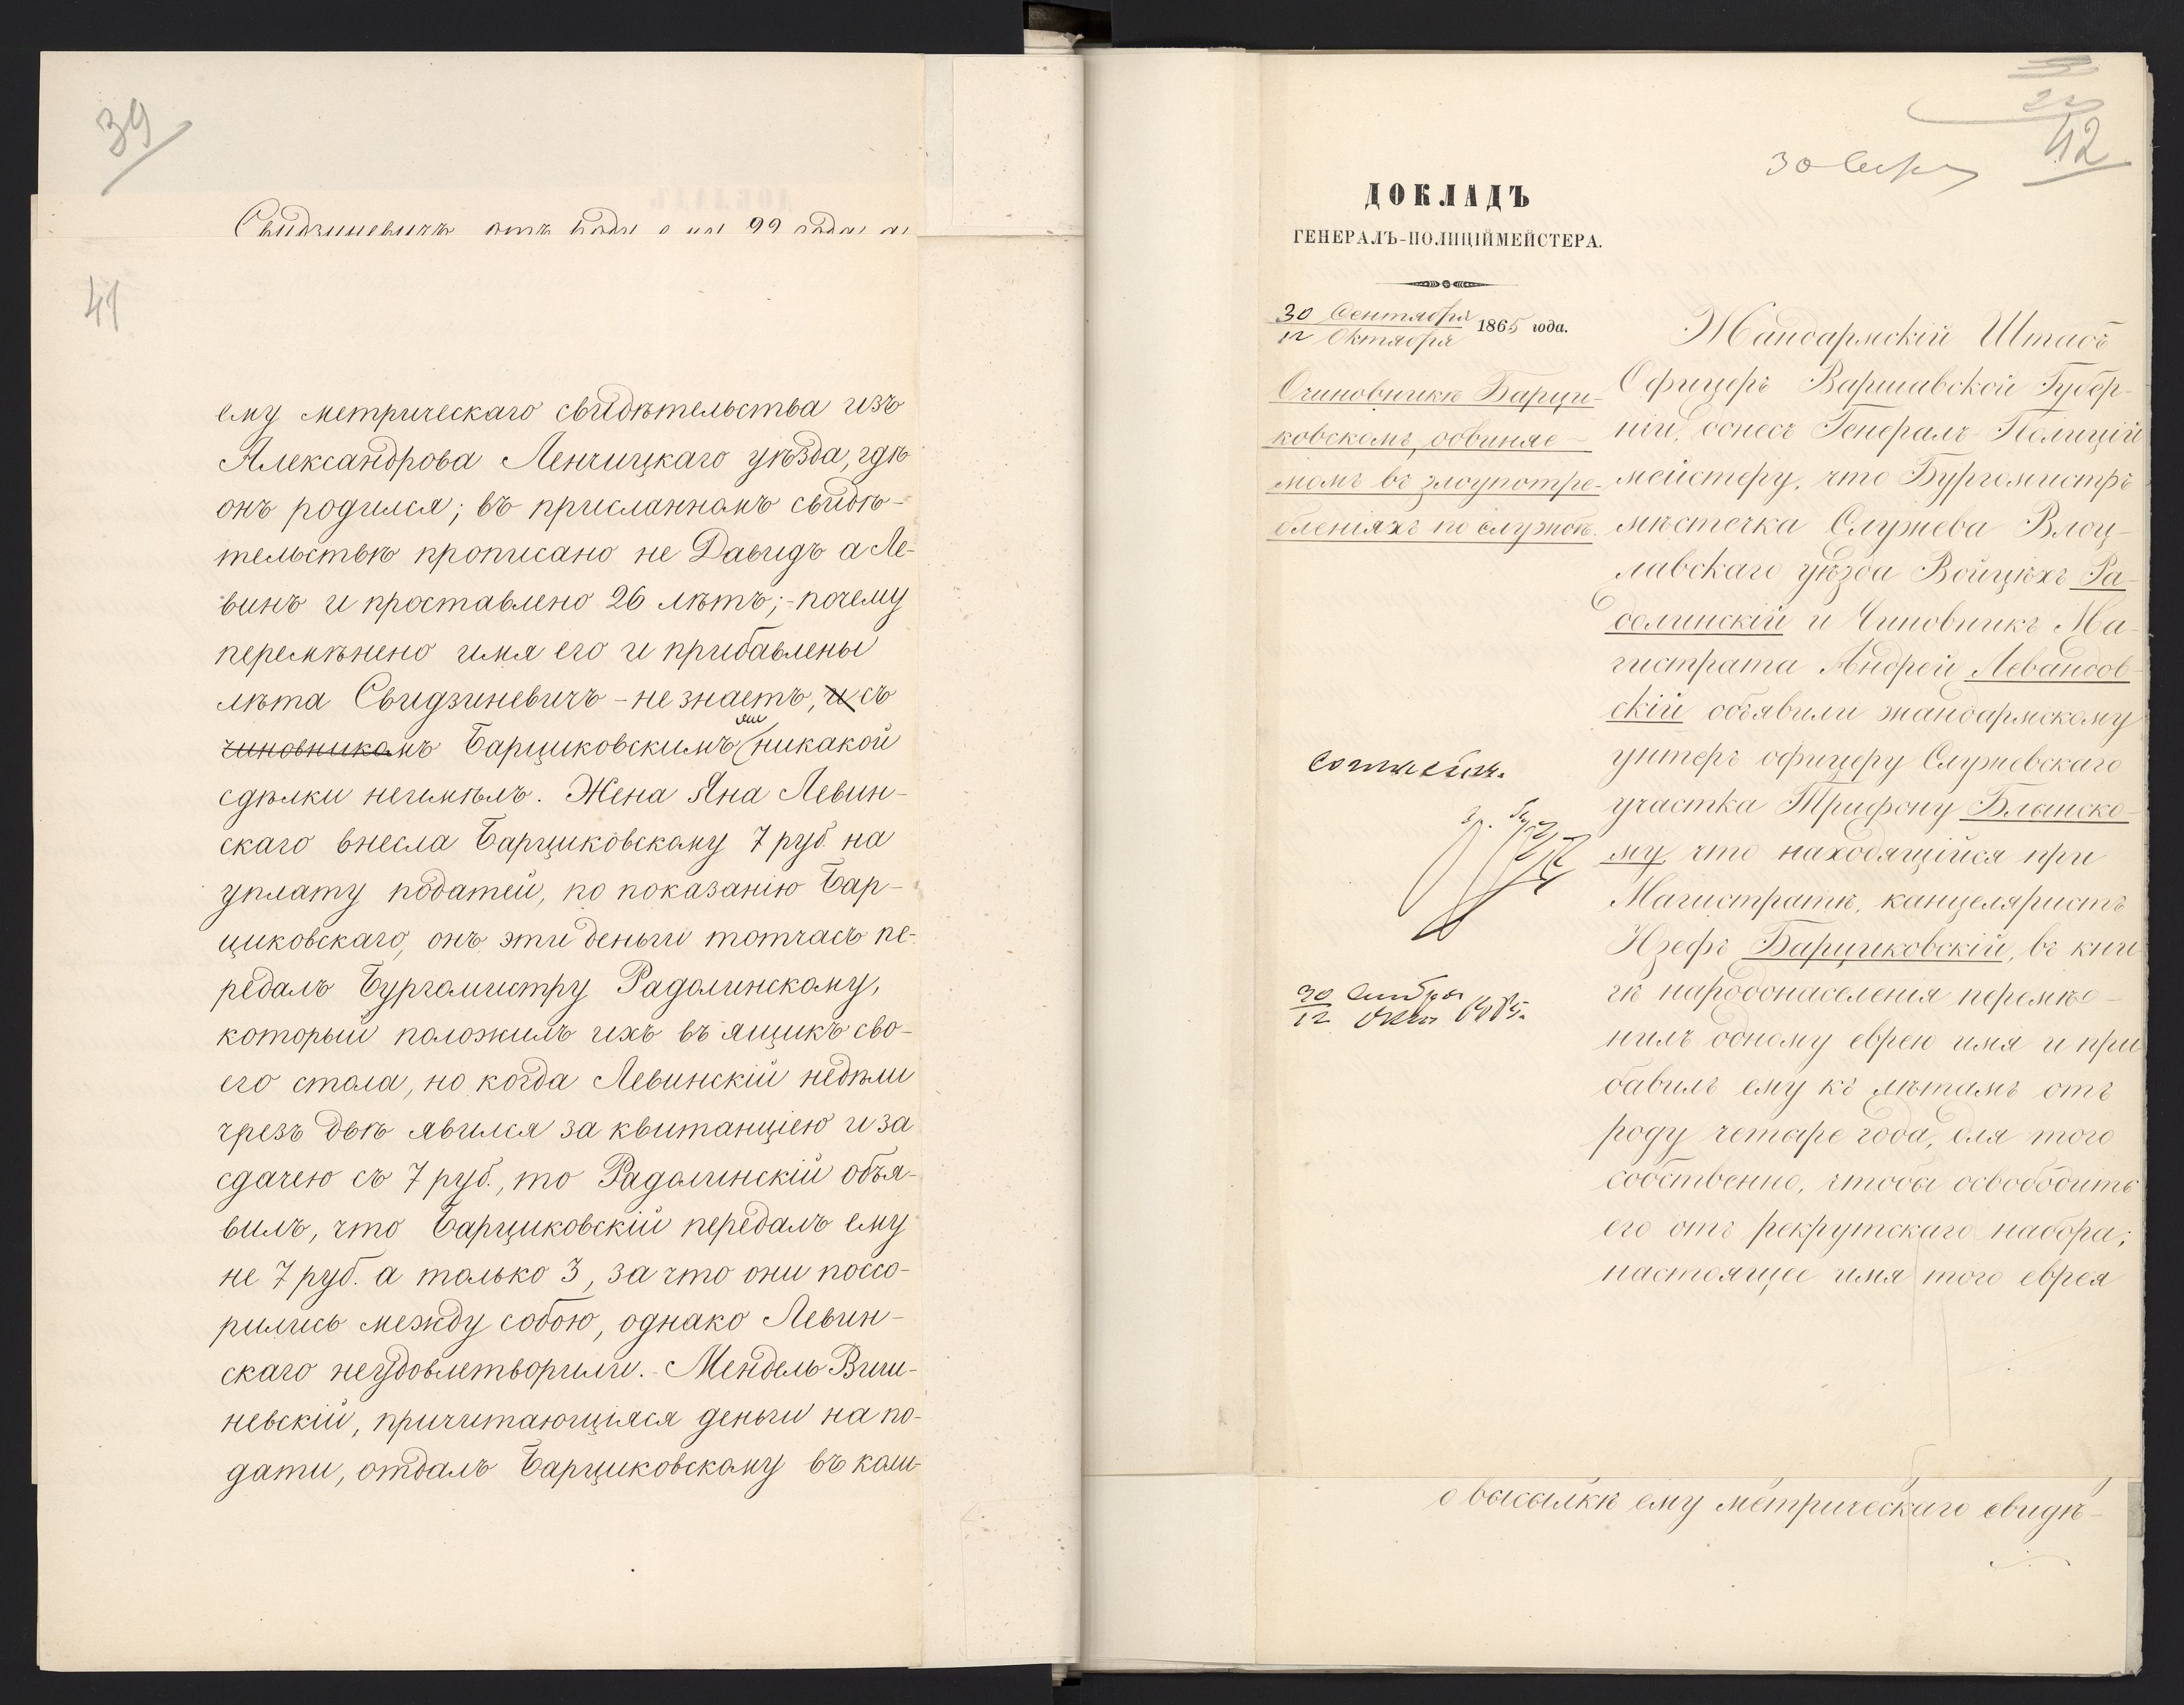 39
Свидзиневичъ отъ роду
41
ему метрическаго свидѣтельства изъ
Александрова Ленчицкаго уѣзда, гдѣ
онъ родился; въ присланномъ свидѣ-
тельствѣ прописано не Давидъ а Ле-
винъ и проставлено 26 лѣтъ;- почему
перемѣнено имя его и прибавлены
лѣта Свидзиневичъ - не знаетъ, и съ
чиновникомъ Барциковскимъ никакой
сдѣлки неимѣлъ. Жена Яна Левин-
скаго внесла Барциковскому 7 руб. на
уплату податей, по показанію Бар-
циковскаго, онъ эти деньги тотчасъ пе-
редалъ Бургомистру Радолинскому,
который положилъ ихъ въ ящикъ сво-
его стола, но когда Левинскій недѣли
чрезъ двѣ явился за квитанціею и за
сдачею съ 7 руб., то Радолинскій объя-
вилъ, что Барциковскій передалъ ему
не 7 руб. а только 3, за что они поссо-
рились между собою, однако Левин-
скаго неудовлетворили.- Мендель Виш-
невскій, причитающіяся деньги на по-
дати, отдалъ Барциковскому въ каш-
22
42
30 Сент
ДОКЛАДЪ
ГЕНЕРАЛЪ-ПОЛИЦІЙМЕЙСТЕРА.
30 Сентября
12 Октября
1865 года.
О чиновникѣ Барци-
ковскомъ, обвиняе-
момъ въ злоупотре-
бленіяхъ по службѣ.
30
12 1865.
Жандармскій Штабъ
Офицеръ Варшавской Губер-
ніи, донесъ Генералъ-Полицій
мейстеру, что Бургомистръ
мѣстечка Служева Влоц-
лавскаго уѣзда Войцѣхъ Ра-
долинскій и Чиновникъ Ма-
гистрата Андрей Левандов-
скій объявили жандармскому
унтеръ офицеру Служевскаго
участка Трифону Блынско-
му, что находящійся при
Магистратѣ, канцеляристъ
Юзефъ Барциковскій, въ кни-
гѣ народонаселенія перемѣ-
нилъ одному еврею имя и при
бавилъ ему къ лѣтамъ отъ
роду четыре года, для того
собственно, чтобы освободить
его отъ рекрутскаго набора;
настоящее имя того еврея
о высылкѣ ему метрическаго свидѣ-